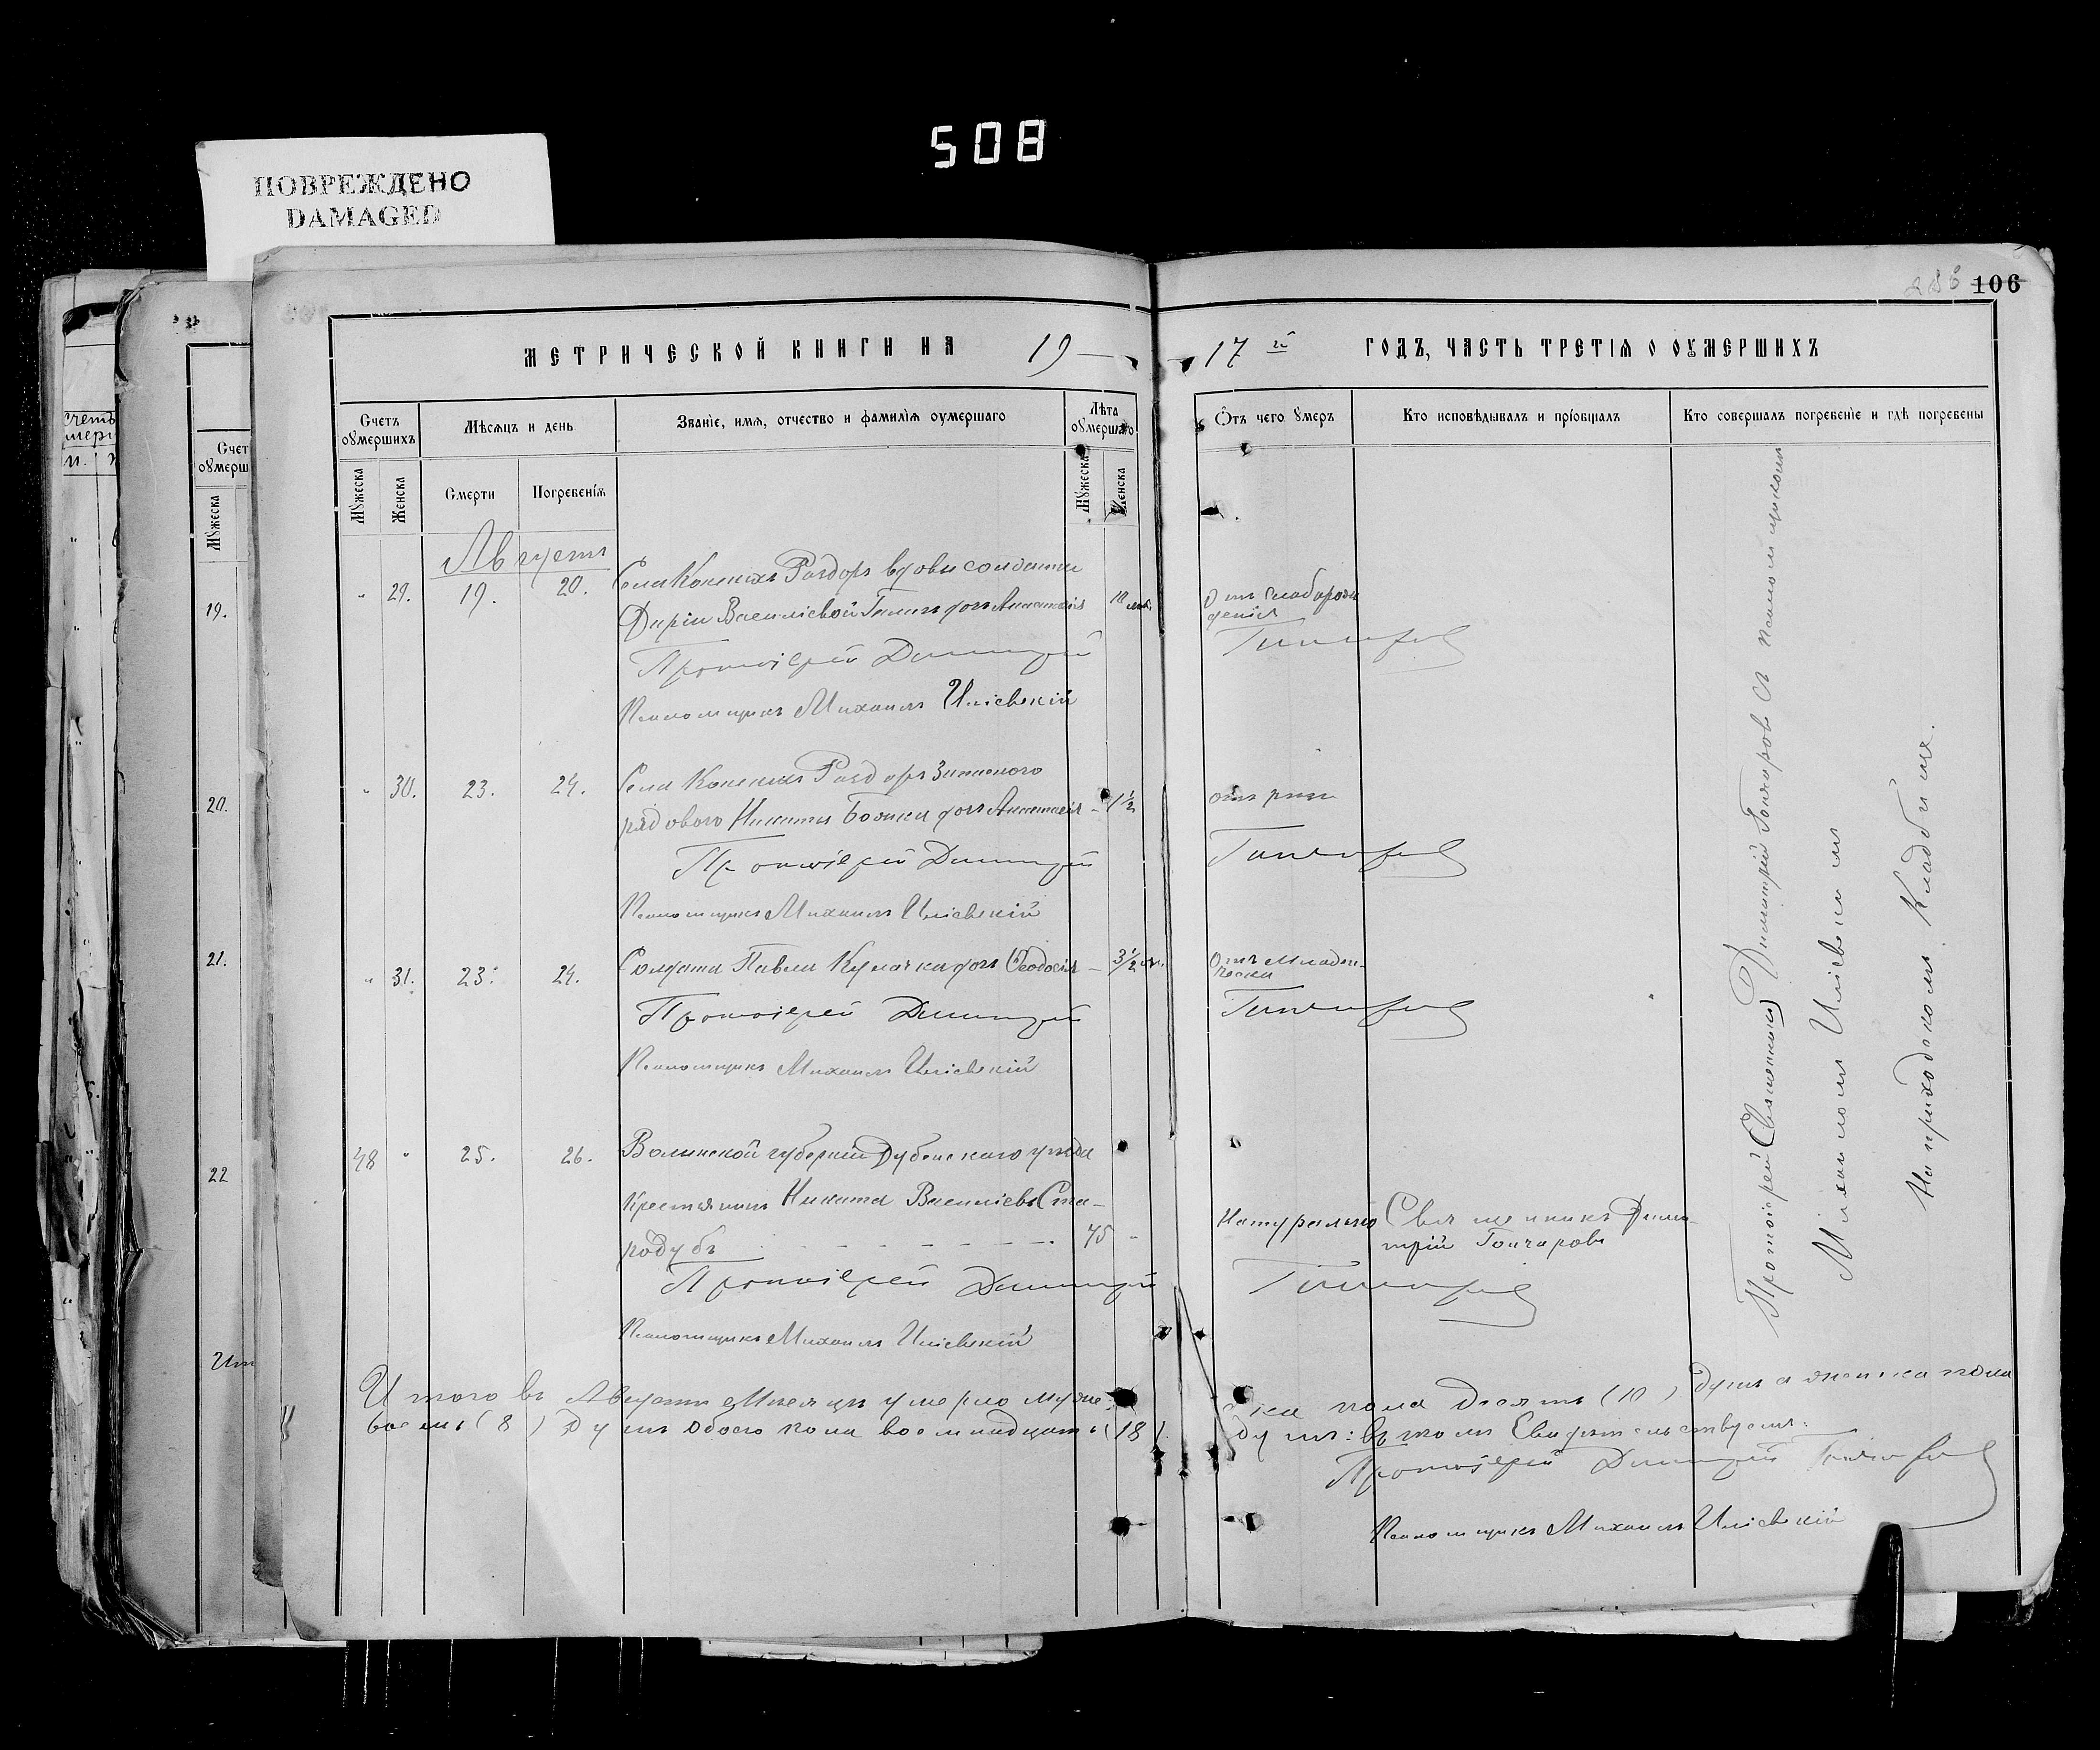 508
ПОВРЕЖДЕНО
DAMAGED
286 106
МЕТРИЧЕСКОЙ КНИГИ НА 19 17 й ГОДЪ, ЧАСТЬ ТРЕТІЯ О ОУМЕРШИХЪ
Счетъ оумершихъ
Мѣсяцъ и день
Званіе, имя, отчество и фамилія оумершаго
Лѣта оумершаго
Отъ чего умеръ
Кто исповѣдывалъ и пріобщалъ
Кто совершалъ погребеніе и гдѣ погребены
Мужеска
Женска
Смерти
Погребенія
Мужеска
Женска
Августъ
" 29. 19. 20. Села Конскихъ Раздоръ вдовы солдатки
Даріи Василіевой дочь Анастасія
отъ слаборож
денія
Протоіерей Димитрій Гончаровъ
Псаломщикъ Михаилъ Иліевскій
" 30. 23. 24. Села Конскихъ Раздоръ Запасного
рядового Никиты дочь Анастасія - 1½
Протоіерей Димитрій Гончаровъ
Псаломщикъ Михаилъ Иліевскій
" 31. 23. 24. Солдата Павла дочь Ѳеодосія - 3½
Отъ младен-
ческа
Протоіерей Димитрій Гончаровъ
Псаломщикъ Михаилъ Иліевскій
48 " 25. 26. Волынской губерніи Дубенскаго уѣзда
Крестьянинъ Никита Василіевъ Ста-
родубъ 75 "
Натурально
Священникъ Дими-
трій Гончаровъ
Протоіерей Димитрій Гончаровъ
Псаломщикъ Михаилъ Иліевскій
Протоіерей (Священникъ) Димитрій Гончаровъ съ псаломщикомъ
Михаиломъ Иліевскимъ
На приходскомъ кладбище.
Итого въ Августѣ мѣсяцѣ умерло муже-
ска пола десять (10) душъ а женска пола
восемь (8) душъ обоего пола восемнадцать (18)
душъ: въ томъ свидѣтельствуемъ:
Протоіерей Димитрій Гончаровъ
Псаломщикъ Михаилъ Иліевскій
Счет
оумерш
Мужеска
19.
20.
21.
22